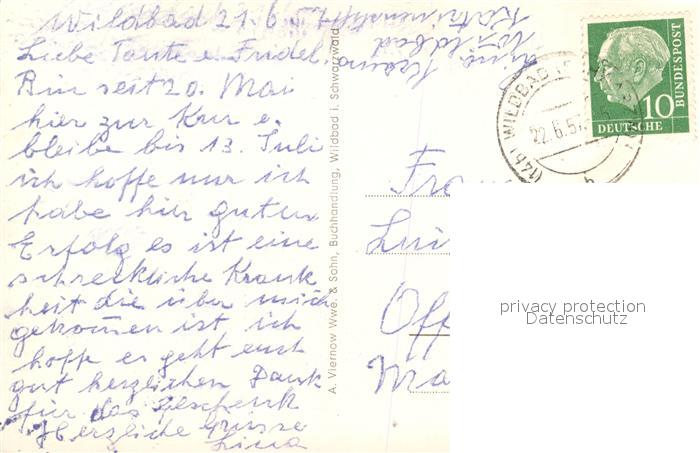 Wildbad 21.6.57
Liebe Tante u. Friedel,
Bin seit 20. Mai
hier zur Kur u.
bleibe bis 13. Juli
ich hoffe nur ich
habe hier guten
Erfolg es ist eine
schreckliche Krank
heit die über mich
gekommen ist ich
hoffe es geht euch
gut herzlichen Dank
für das Geschenk
Herzliche Grüsse
Lina
Wildbad
Katharinenstift
A. Viernow Wwe. & Sohn, Buchhandlung, Wildbad i. Schwarzwald
(14b) WILDBAD (SCHWARZW)
22.6.57
10
DEUTSCHE
BUNDESPOST
Fra
Lui
Off
Ma
privacy protection
Datenschutz